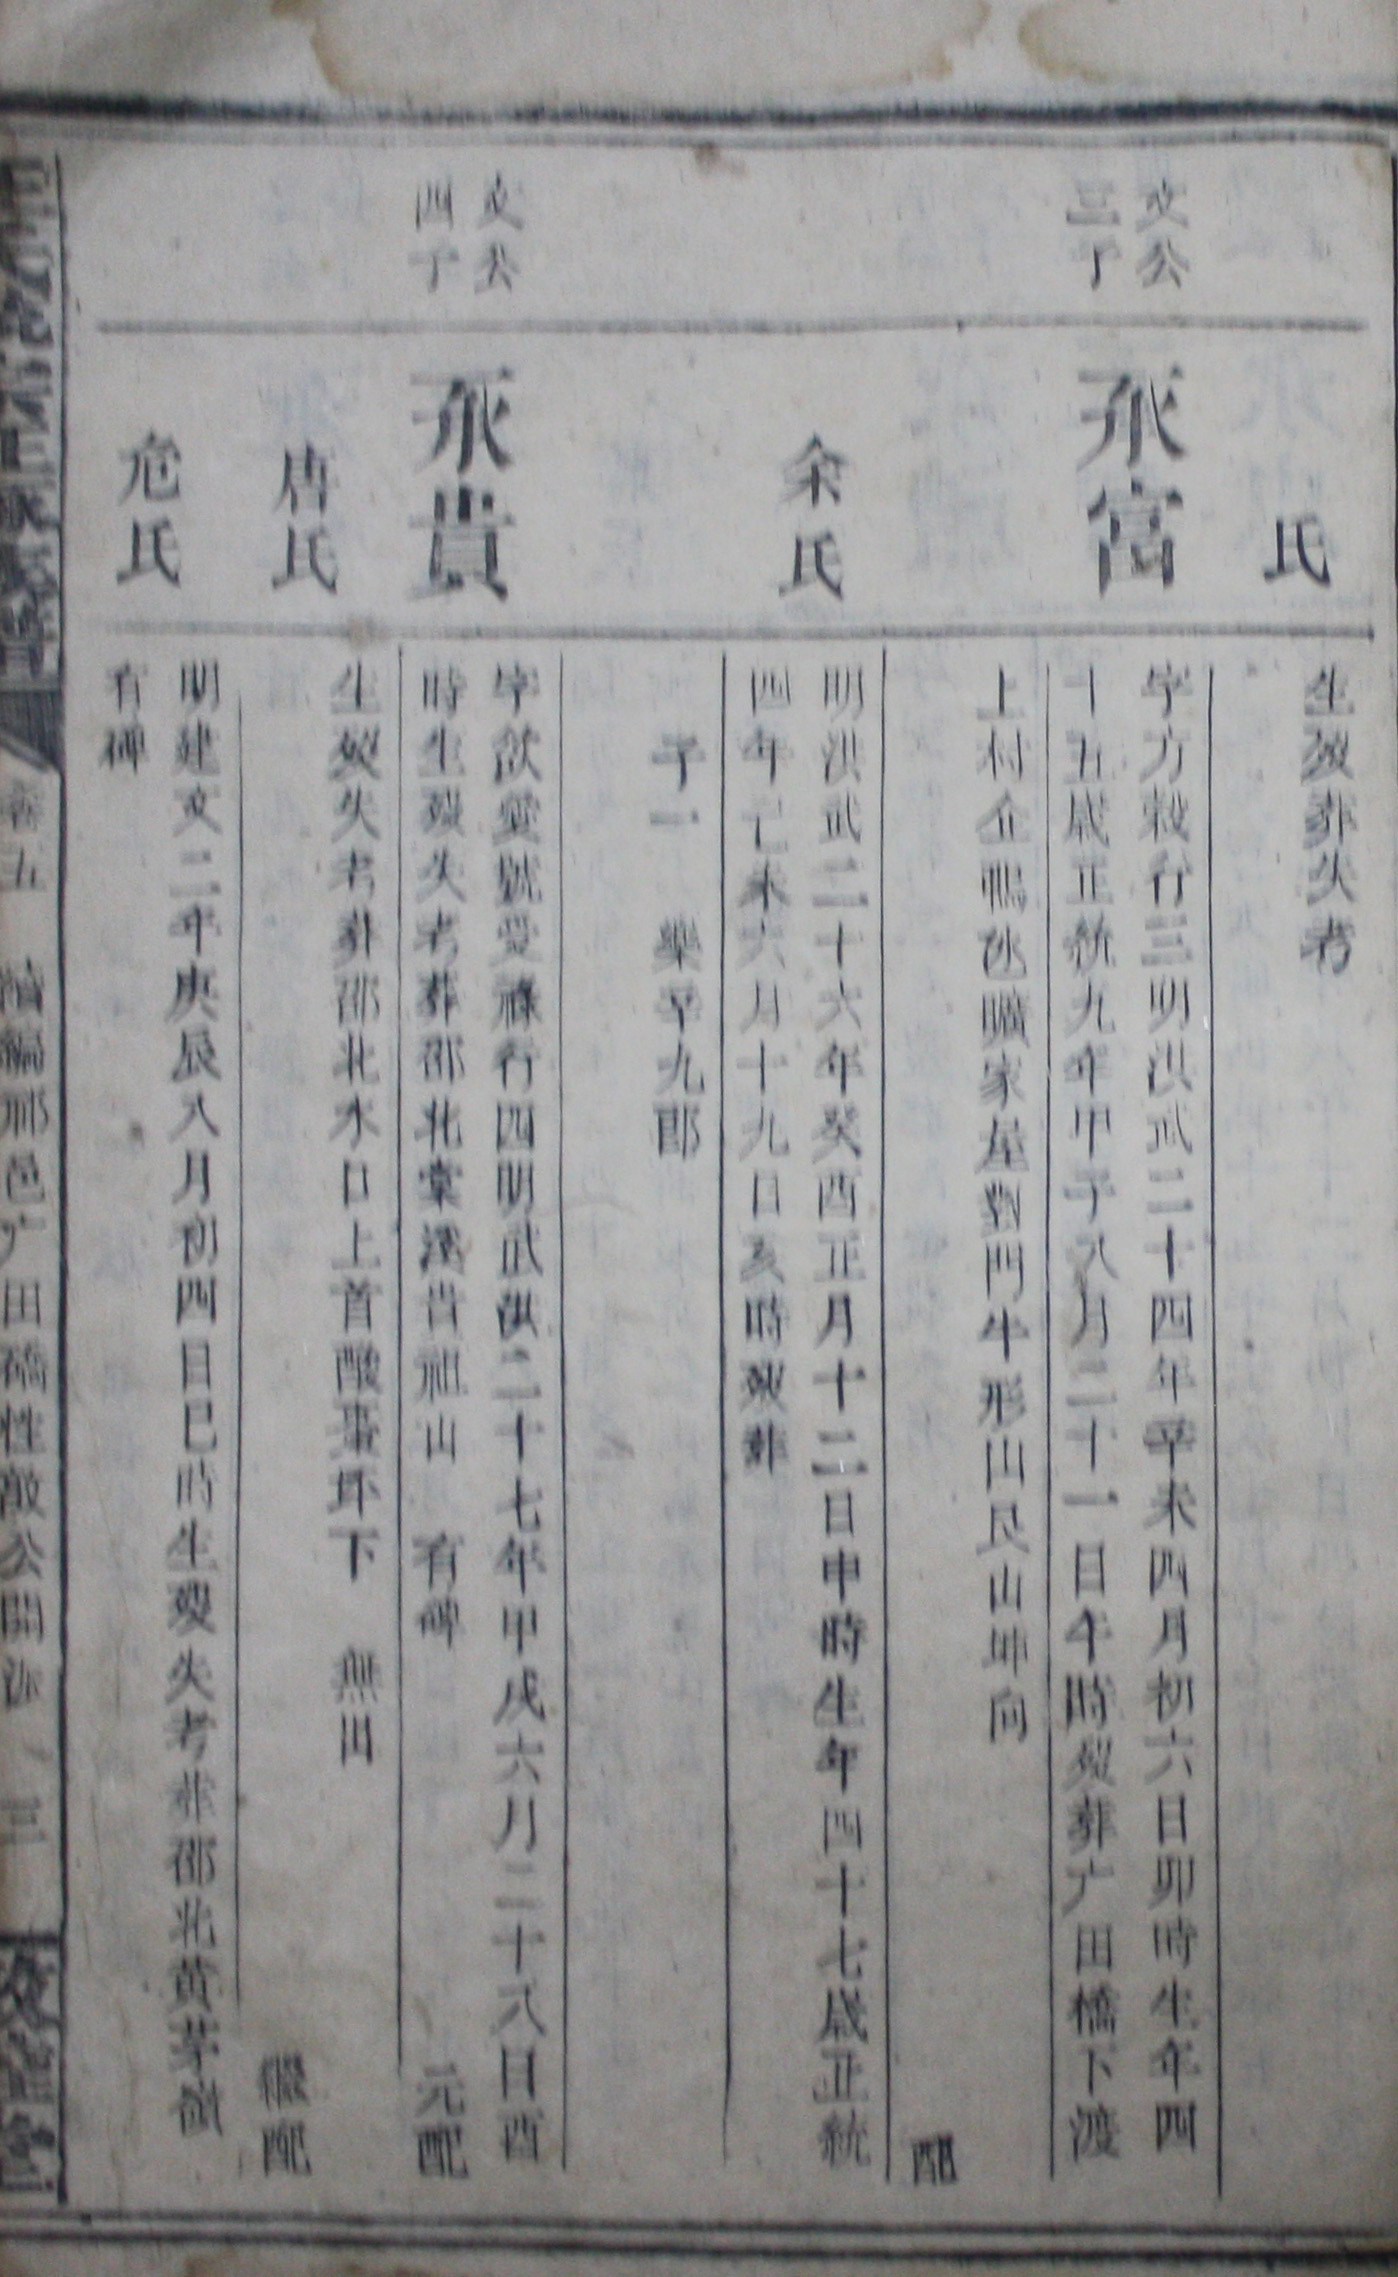 氏
生歿葬失考
文公
三子
永富
字方穀行三明洪武二十四年辛未四月初六日卯時生年四
十五歲正統九年甲子八月二十一日午時歿葬广田橋下渡
上村企鴨氹曠家屋對門牛形山艮山坤向
配
余氏
明洪武二十六年癸酉正月十二日申時生年四十七歲正統
四年己未六月十九日亥時歿葬
子一 樂平九郎
文公
四子
永貴
字欽愛號受祿行四明武洪二十七年甲戌六月二十八日酉
時生歿失考葬邵北棠溪昔祖山 有碑
元配
唐氏
生歿失考葬邵北水口上首酸棗坏下 無出
繼配
危氏
明建文二年庚辰八月初四日巳時生歿失考葬邵北黃茅嶺
有碑
卷五 續編邢邑广田橋性敵公開派 三